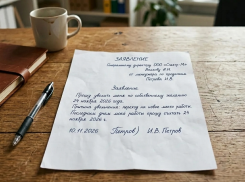 ЗАЯВЛЕНИЕ
Генеральному директору ООО «Сейлз-М»
Иванову А.И.
от менеджера по продажам
Петрова И.В.
Заявление.
Прошу уволить меня по собственному желанию
24 ноября 2026 года.
Причина увольнения: переход на новое место работы.
Последним днем моей работы прошу считать 24
ноября 2026 г.
10.11.2026 (Петров) И.В. Петров